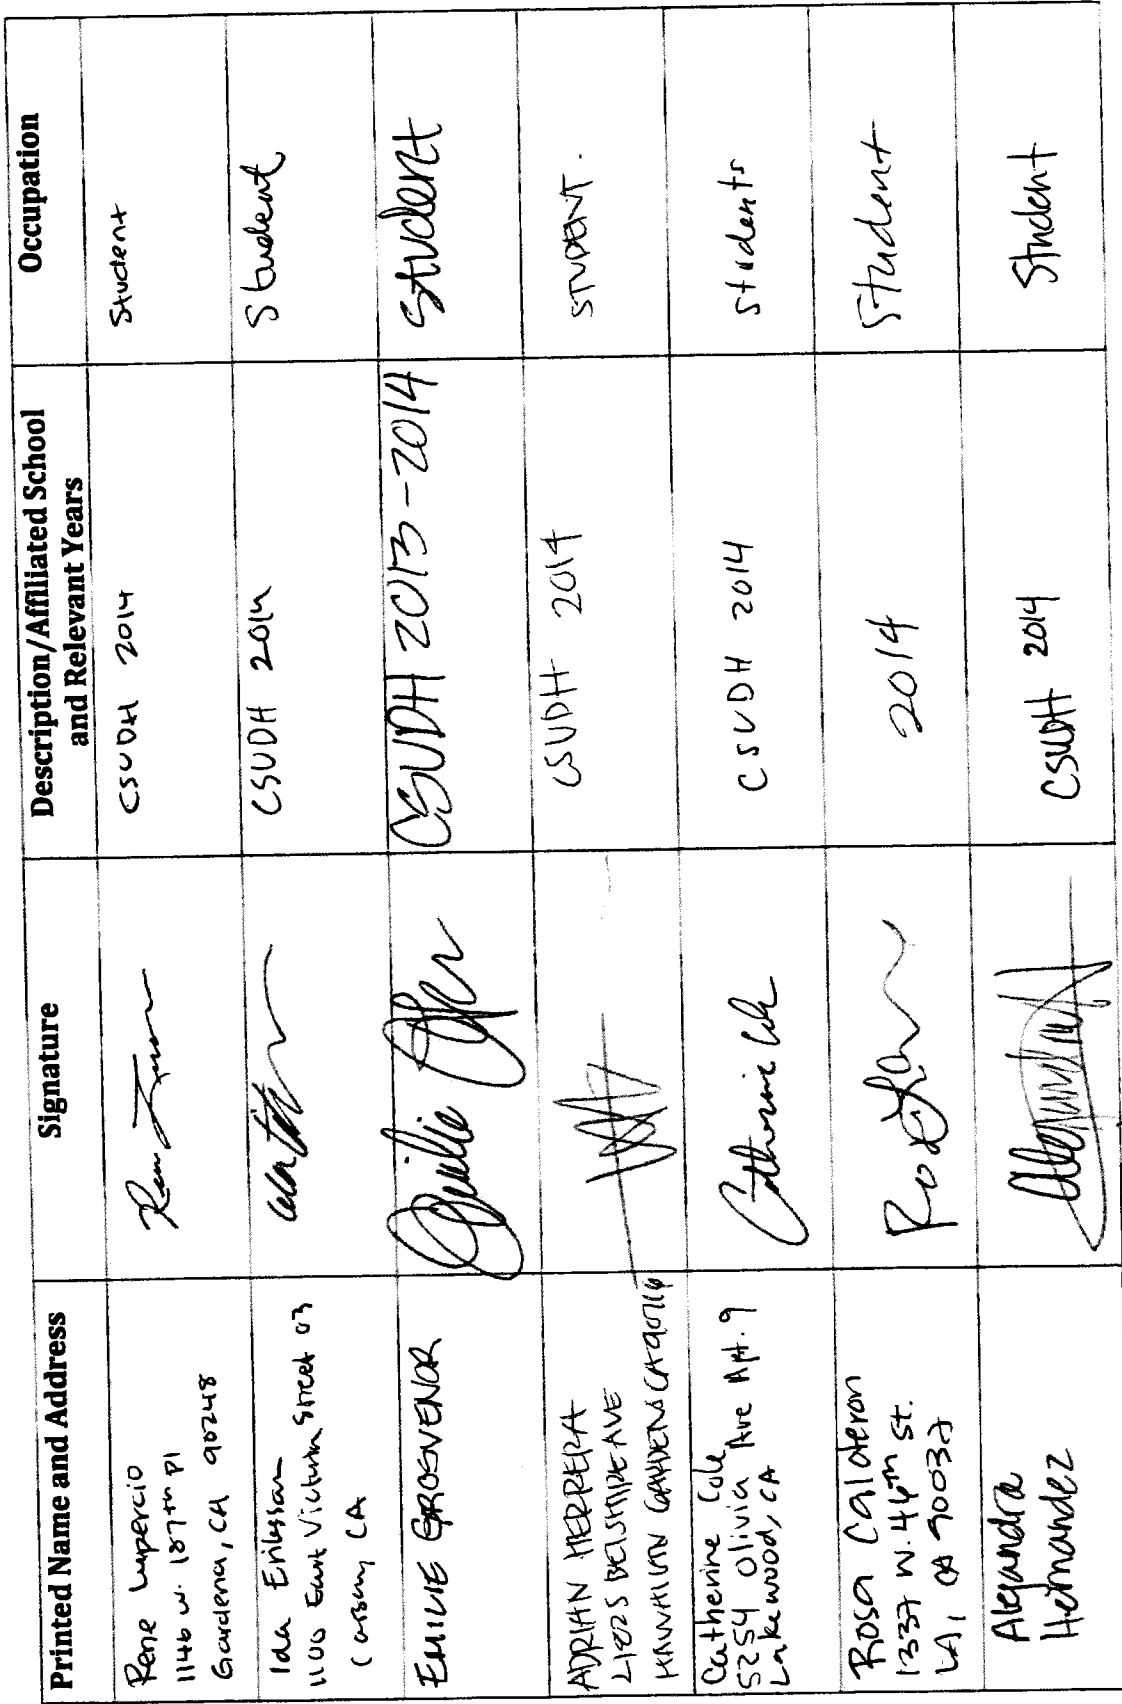 Printed Name and Address
Signature
Description/Affiliated School
and Relevant Years
Occupation
Rene Lupercio
1146 w. 187th Pl
Gardena, CA 90248
CSUDH 2014
Student
Ida Eriksson
1100 East Victoria Street 03
Carson, CA
CSUDH 2014
Student
EMILIE GROSVENOR
Emilie
CSUDH 2013-2014
Student
ADRIAN HERRERA
BELSHIRE AVE
HAWAIIAN GARDENS CA 90716
CSUDH 2014
STUDENT.
Catherine Cole
5254 Olivia Ave Apt. 9
Lakewood, CA
Catherine Cole
CSUDH 2014
Students
Rosa Calderon
1337 W. 46th St.
LA, CA 90037
2014
Student
Alejandra
Hernandez
CSUDH 2014
Student